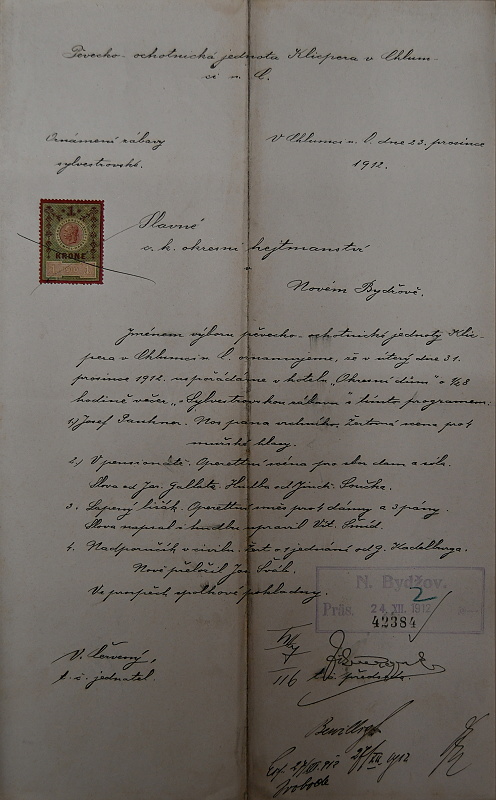 Pěvecko-ochotnická jednota Klicpera v Chlum-
ci n. C.
Oznámení zábavy
sylvestrovské.
V Chlumci n. C. dne 23. prosince
1912.
1
KRONE
Slavné
c. k. okresní hejtmanství
v
Novém Bydžově.
Jménem výboru pěvecko-ochotnické jednoty Klic-
pera v Chlumci n. C. oznamujeme, že v úterý dne 31.
prosince 1912. uspořádáme v hotelu „Okresní dům" o ½8
hodině večer „Sylvestrovskou zábavu" s tímto programem:
1.) Josef Paukner. Nos pana vrchního. Žertovná scena pro 4
mužské hlasy.
2.) V pensionátě. Operettní scéna pro sbor dam a sóla.
Slova od Jos. Galleta. Hudba od Jindř. Součka.
3. Operettní směs pro 4 dámy a 3 pány.
Slova napsal a hudbu upravil Vít. Šmíd.
4. Nadporučík v civilu. Žert o 1 jednání od G. Kadelburga.
Nově přeložil Jos. Šváb.
Ve prospěch spolkové pokladny.
N. Bydžov.
2
Präs. 24. XII. 1912
42384
V. Červený,
t. č. jednatel.
t. č. předseda.
116
27/XII 1912